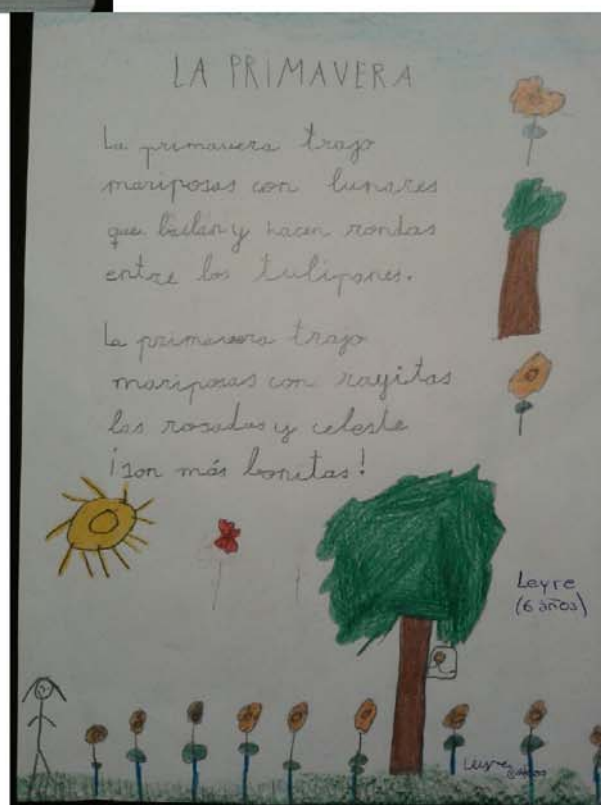 LA PRIMAVERA
La primavera trajo
mariposas con lunares
que bailan y hacen rondas
entre los tulipanes.
La primavera trajo
mariposas con rayitas
las rosadas y celeste
¡son más bonitas!
Leyre
(6 años)
Leyre